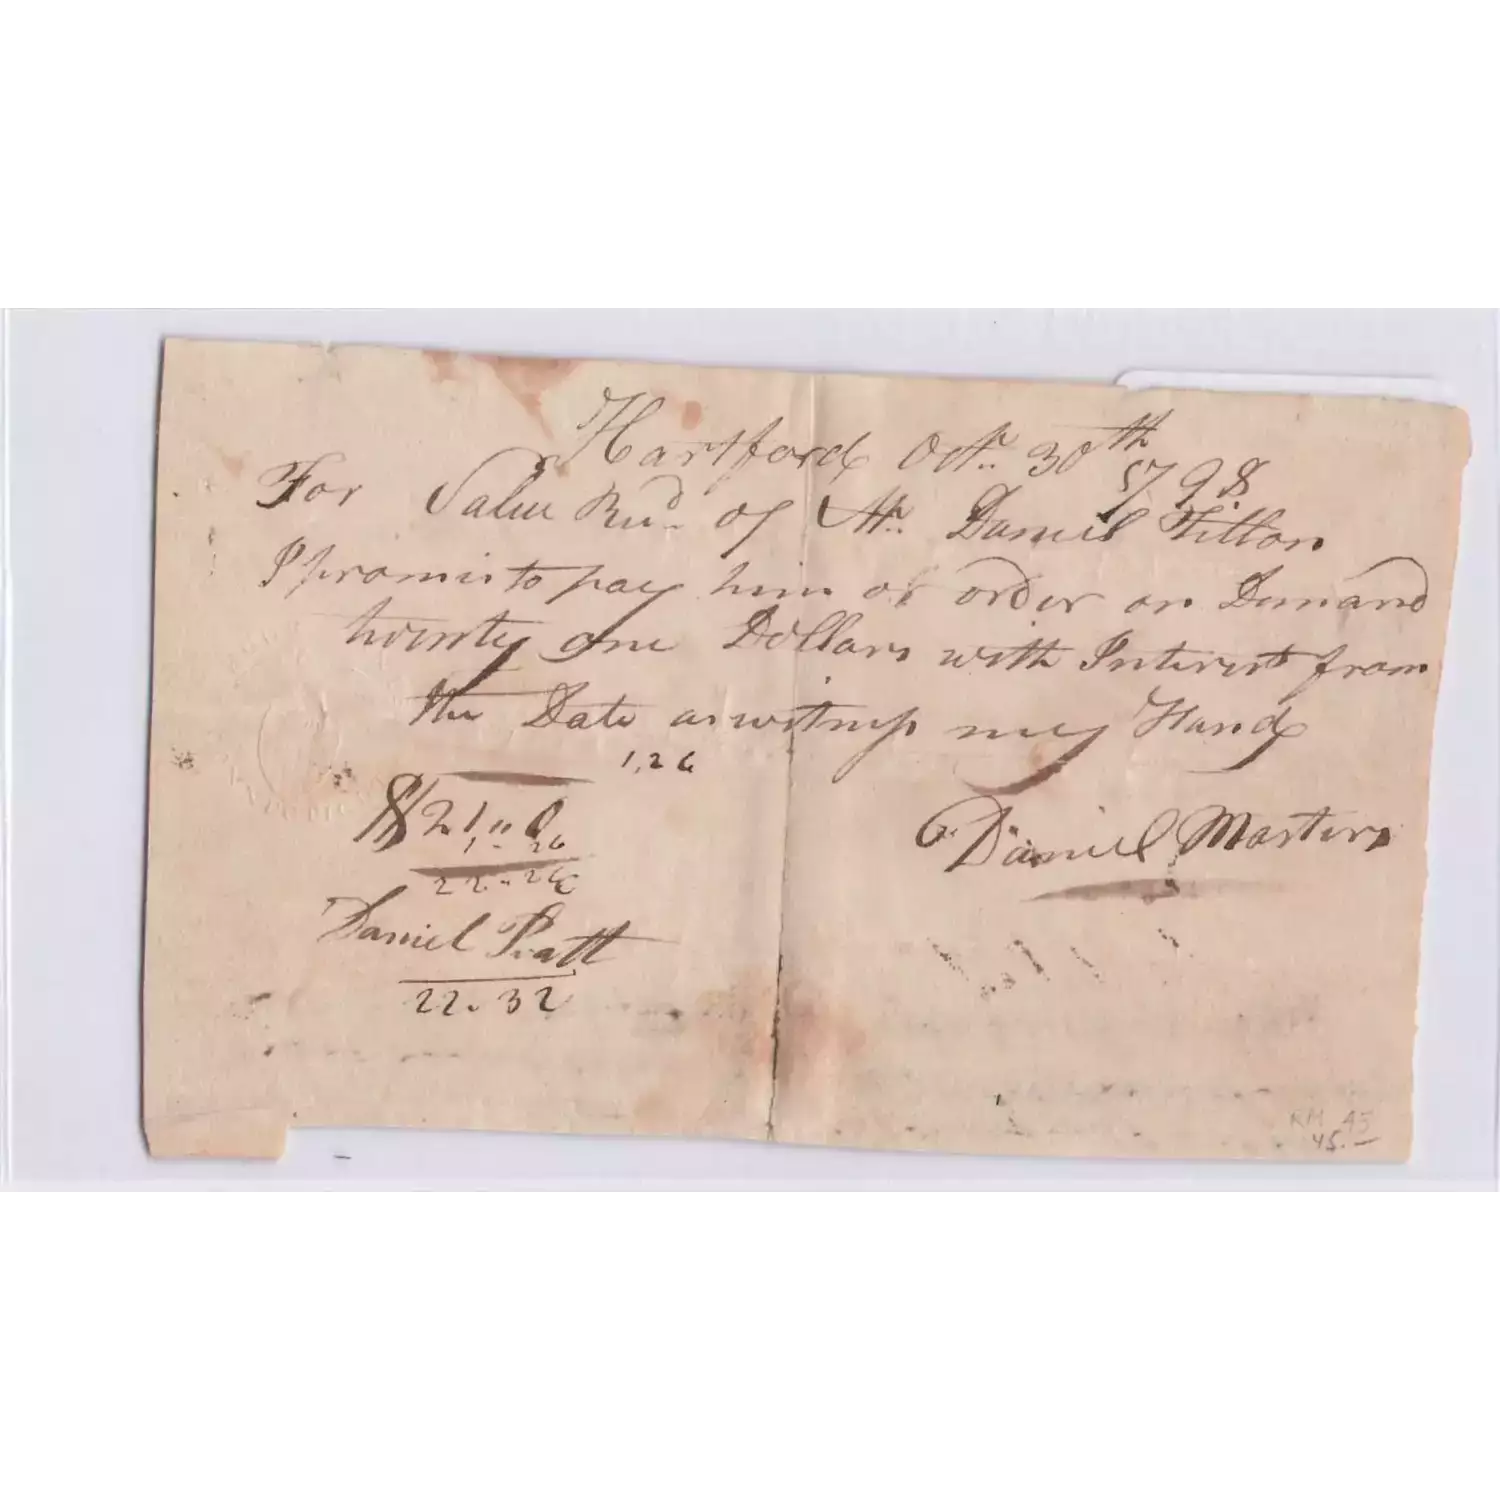 Hartford Octr. 30th
1798
For Value Recd. of Mr. Daniel Tillton
I promis to pay him or order on Demand
twenty one Dollars with Interest from
the Date as witness my Hand
1,26
$21"0
1 " 26
22 " 26
Daniel Masters
Daniel Pratt
22. 32
RM 45
45.—